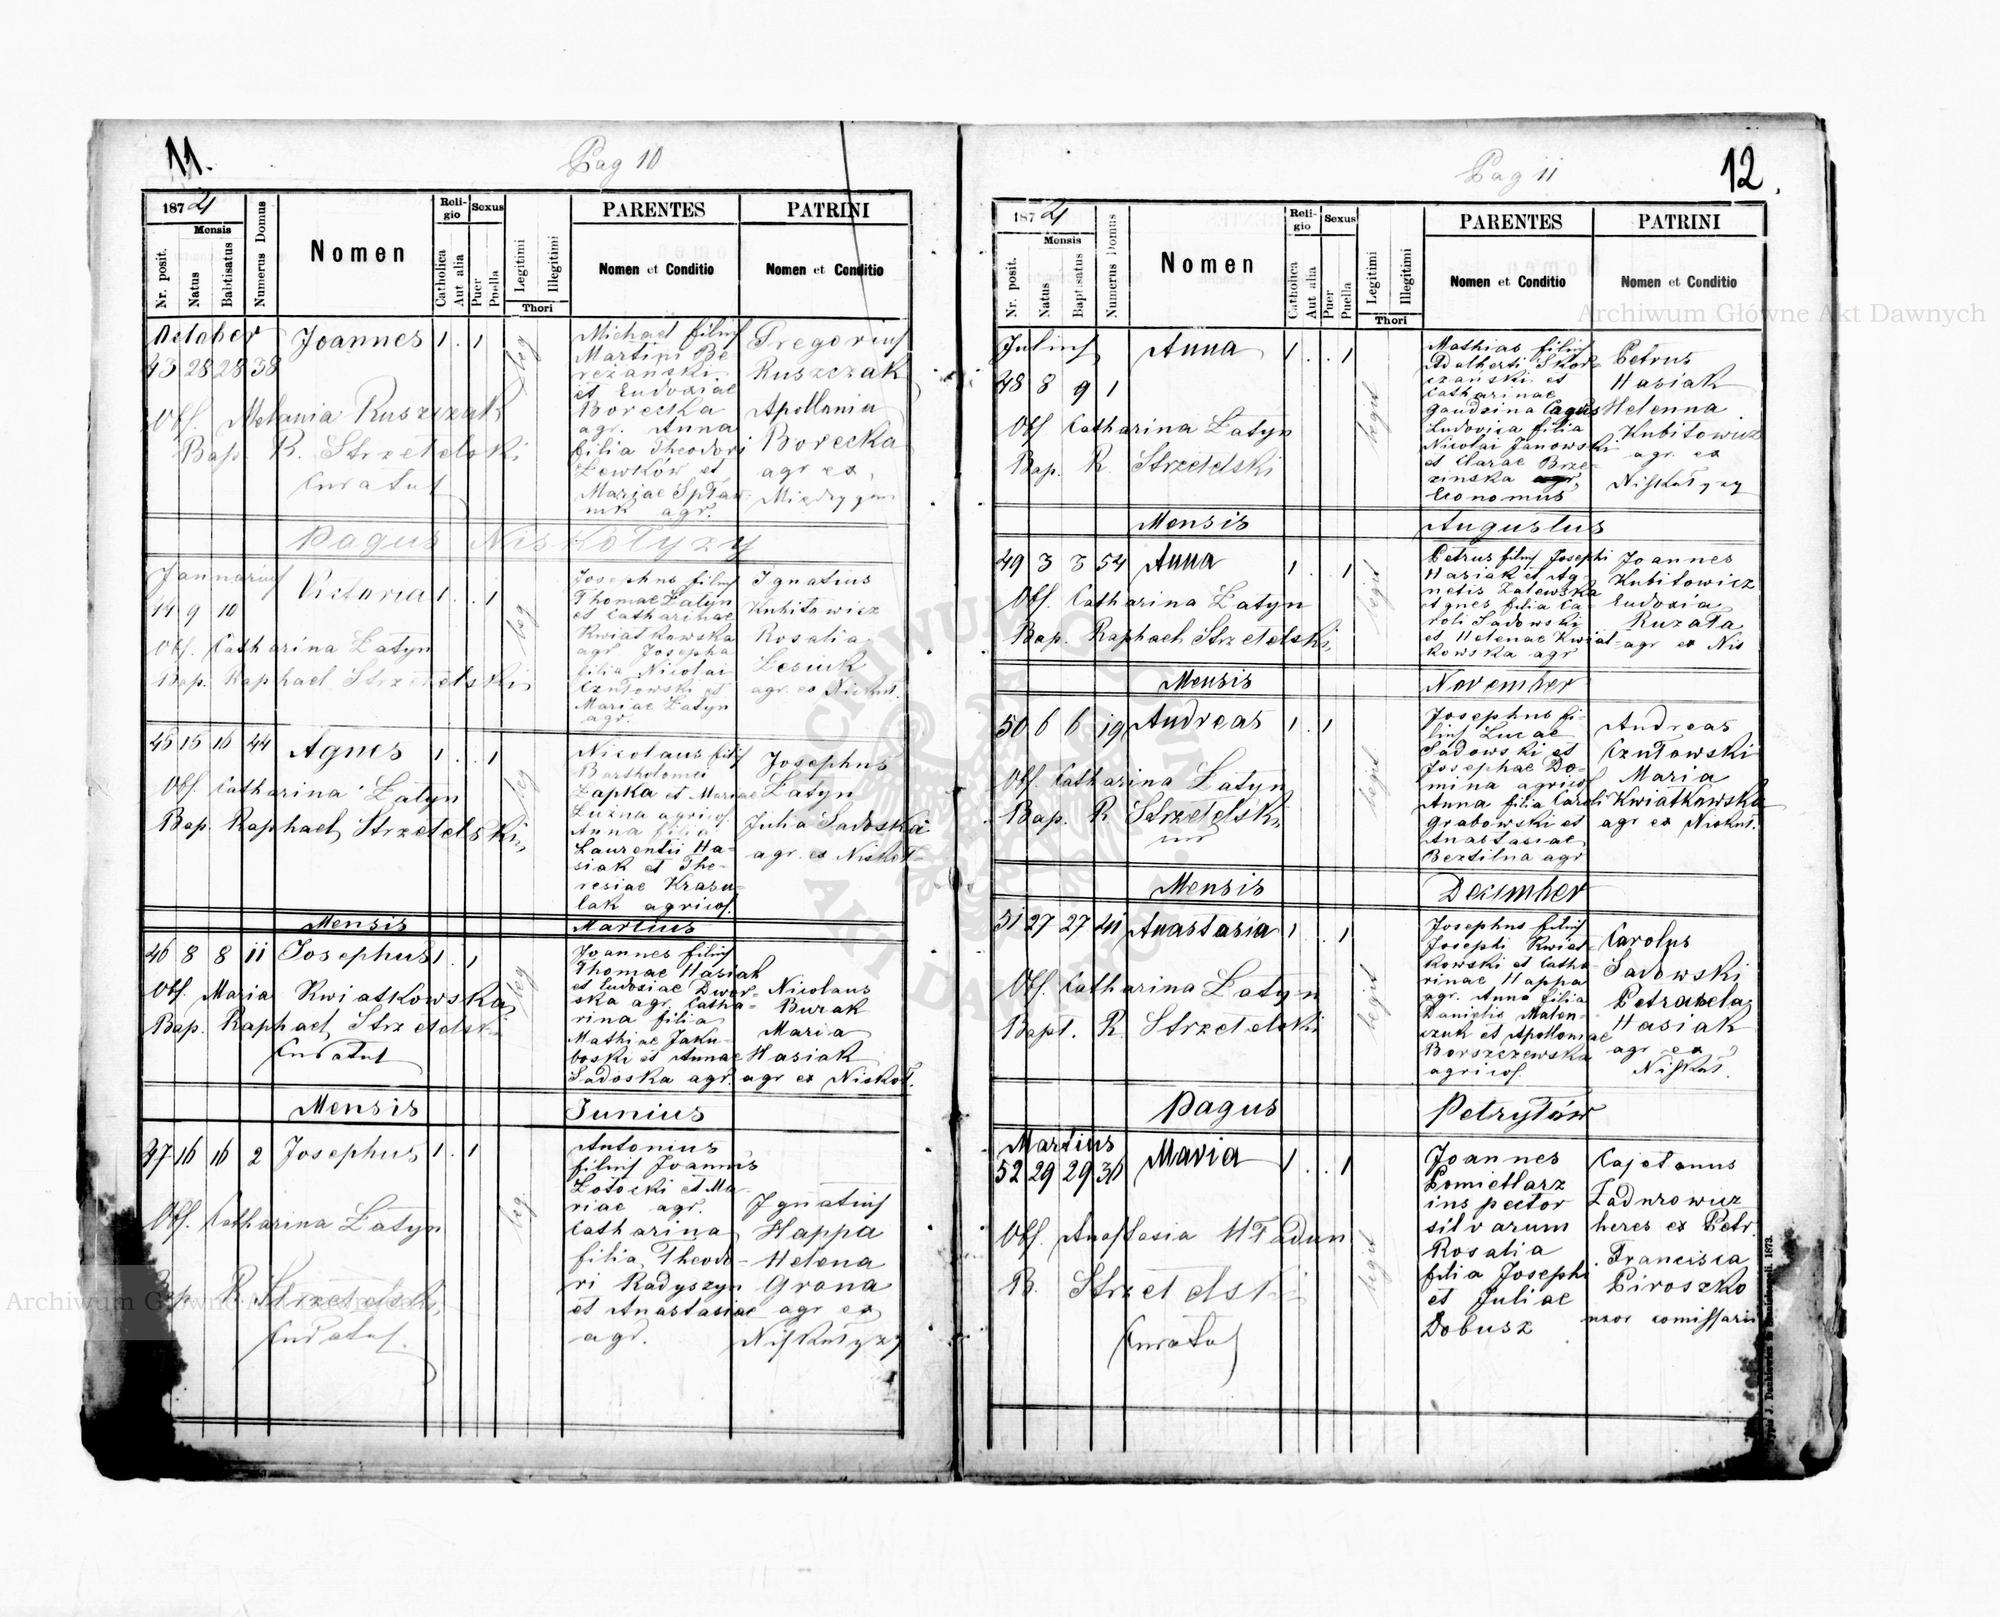 11.
Pag 10
1874
Mensis
Nr. posit.
Natus
Babtisatus
Numerus Domus
Nomen
Religio
Catholica
Aut alia
Sexus
Puer
Puella
Legitimi
Illegitimi
Thori
PARENTES
Nomen et Conditio
PATRINI
Nomen et Conditio
October
43 28 28 38
Joannes 1 . 1
leg
Obs. Melania Ruszczak
Bap. R. Strzetelski
Curatus
Michael filius
Martini Be-
rezański
et Eudoxiae
Borecka
agr. Anna
filia Theodori
Lewków et
Mariae Spław-
nik agr.
Gregorius
Ruszczak
Apollonia
Borecka
agr ex
Pagus Niskołyzy
Januarius
44 9 10
Victoria 1 . . 1
leg
Obs. Catharina Łatyn
Bap. Raphael Strzetelski
Josephus filius
Thomae Łatyn
et Catharinae
Kwiatkowska
agr Josepha
filia Nicolai
Czułowski et
Mariae Łatyn
agr.
Ignatius
Kubitowicz
Rosalia
Lesiuk
agr. ex Niskoł.
45 15 16 44
Agnes 1 . . 1
leg
Obs. Catharina Łatyn
Bap. Raphael Strzetelski
Nicolaus fili
Bartholomei
Łapka et Mariae
Luzna agricos.
Anna filia
Laurentii Ha-
siak et The-
resiae Krasu-
lak agricos.
Josephus
Łatyn
Julia Sadoska
agr. ex Niskoł-
Mensis Martius
46 8 8 11 Josephus 1 . 1
leg
Obs. Maria Kwiatkowska
Bap. Raphael Strzetelski
Curatus
Joannes filius
Thomae Hasiak
et Eudosiae Dwor-
ska agr. Catha-
rina filia
Mathiae Jaku-
boski et Annae
Sadoska agr.
Nicolaus
Burak
Maria
Hasiak
agr ex Niskoł.
Mensis Junius
47 16 16 2 Josephus 1 . 1
leg
Obs. Catharina Łatyn
Bap. R. Strzetelski
Curatus.
Antonius
filius Joannis
Łotocki et Ma-
riae agr.
Catharina
filia Theodo-
ri Radyszyn
et Anastasiae
agr.
Ignatius
Happa
Helena
Grona
agr ex
Niskołyzy
Pag 11
12.
1874
Mensis
Nr. posit.
Natus
Baptisatus
Numerus Domus
Nomen
Religio
Catholica
Aut alia
Sexus
Puer
Puella
Legitimi
Illegitimi
Thori
PARENTES
Nomen et Conditio
PATRINI
Nomen et Conditio
Julius
48 8 9 1
Anna 1 . . 1
legit
Obs Catharina Łatyn
Bap. R. Strzetelski
Mathias filius
Adalberti Skor-
czański et
Catharinae
Gaudzina
Ludovica filia
Nicolai Janowski
et Clarae Brze-
zinska agr,
Economus
Petrus
Hasiak
Helenna
Kubitowicz
agr. ex
Niskołyzy
Mensis Augustus
49 3 3 54 Anna 1 . . 1
legit
Obs. Catharina Łatyn
Bap. Raphael Strzetelski
Petrus filius Josephi
Hasiak et Ag-
netis Zalewska
Agnes filia Ca-
roli Sadowski
et Helenae Kwiat-
kowska agr
Joannes
Kubitowicz
Eudoxia
Ruzała
agr ex Nis
Mensis November
50 6 6 19 Andreas 1 . 1
legit
Obs. Catharina Łatyn
Bap. R Strzetelski
Josephus fi-
lius Lucae
Sadowski et
Josephae Do-
mina agricos
Anna filia Caroli
Grabowski et
Anastasiae
Beztilna agr
Andreas
Czułowski
Maria
Kwiatkowska
agr ex Niskoł.
Mensis December
51 27 27 41 Anastasia 1 . . 1
legit
Obs. Catharina Łatyn
Bapt. R. Strzetelski
Josephus filius
Josephi Kwiat-
kowski et Catha-
rinae Happa
agr. Anna filia
Danielis Maten-
czuk et Apolloniae
Borszczewska
agricos.
Carolus
Sadowski
Petronela
Hasiak
agr ex
Niskoł.
Pagus Petryłów
Martius
52 29 29 36 Maria 1 . . 1
legit
Obs. Anastasia
B. Strzetelski
Curatus
Joannes
Pomietlarz
inspector
silvarum
Rosalia
filia Josephi
et Juliae
Dobusz
Cajetanus
Zadurowicz
heres ex Petr.
Francisca
Piroszko
uxor comissarii
Archiwum Główne Akt Dawnych
ARCHIWUM GŁÓWNE AKT DAWNYCH
Archiwum Główne Akt Dawnych